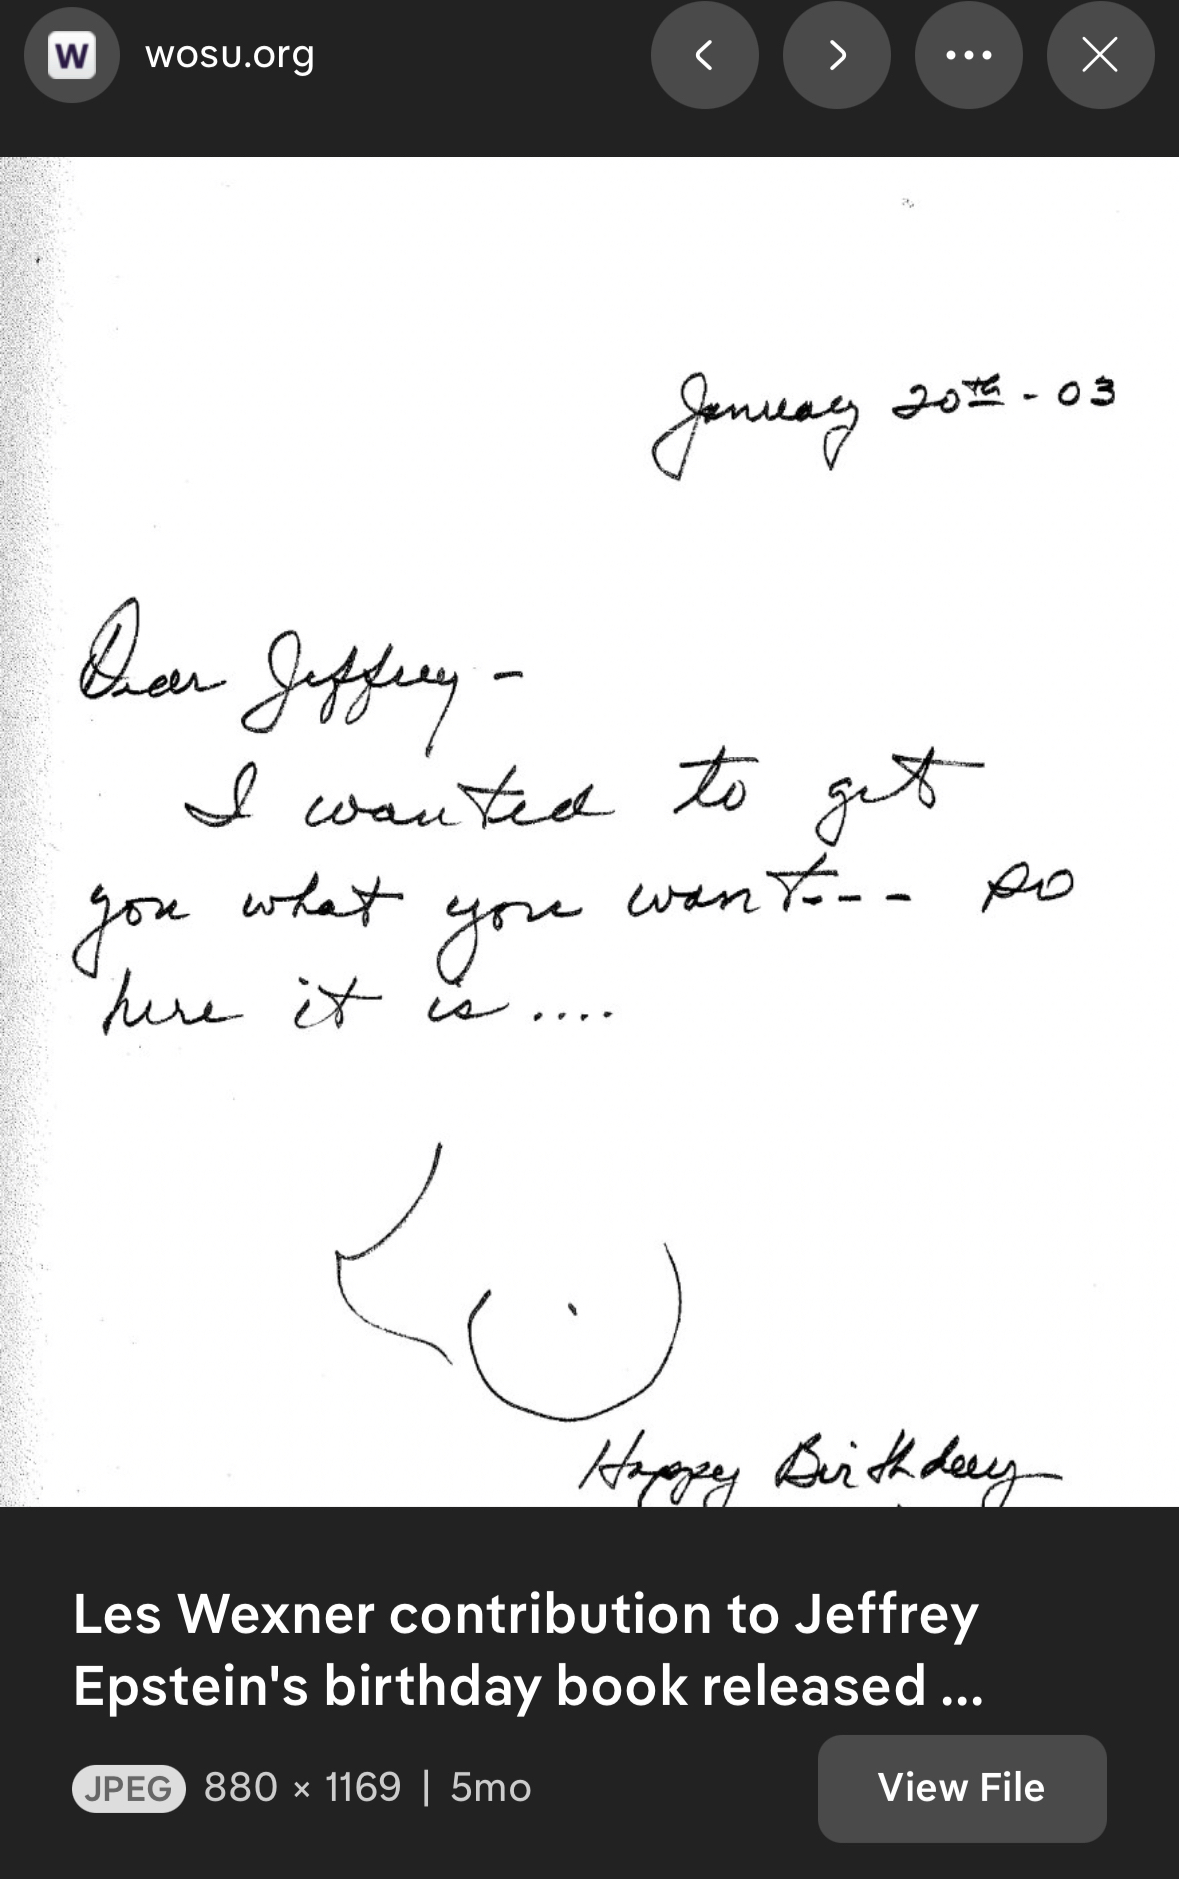 W wosu.org
January 20th - 03
Dear Jeffrey -
I wanted to get
you what you want--- so
here it is ....
Happy Birthday
Les Wexner contribution to Jeffrey
Epstein's birthday book released ...
JPEG 880 × 1169 | 5mo
View File